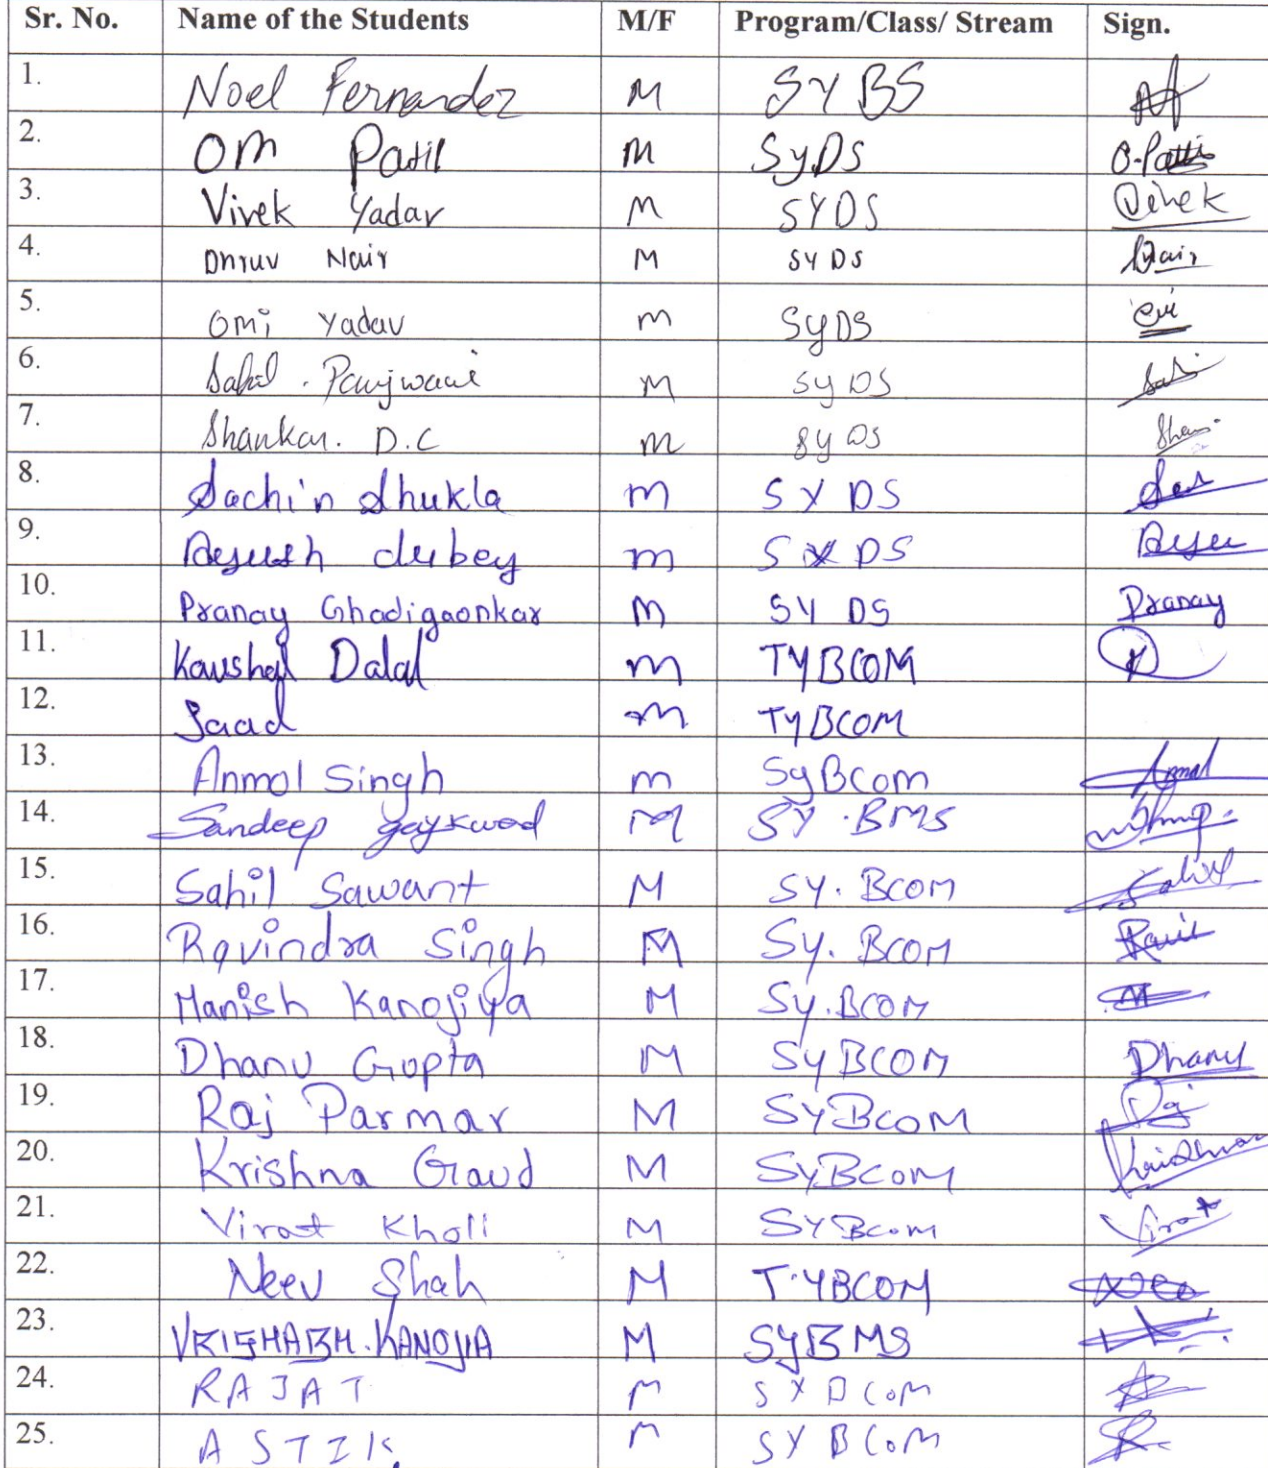 Sr. No. Name of the Students M/F Program/Class/ Stream Sign.
1. Noel Fernandez M SYBS
2. Om Patil M SyDS O-Patil
3. Vivek Yadav M SYDS Vivek
4. Dhruv Nair M SYDS Nair
5. Omi Yadav m SyDS
6. Sahil . Panjwani M SyDS
7. Shankar. D.C m SyDS
8. Sachin Shukla m SYDS
9. Aayush dubey m SYDS
10. Pranay Ghadigaonkar M SYDS Pranay
11. Kaushal Dalal m TYBCOM
12. Saad m TYBCOM
13. Anmol Singh m SyBCom Anmol
14. Sandeep gaykwad M SY.BMS
15. Sahil Sawant M SY. BCOM Sahil
16. Ravindra Singh M Sy. BCOM
17. Manish Kanojiya M Sy.BCOM M
18. Dhanu Gupta M SyBCOM Dhanu
19. Raj Parmar M SYBCOM Raj
20. Krishna Gaud M SYBCOM Krishna
21. Virat Kholi M SYBcom Virat
22. Neev Shah M T.YBCOM
23. VRISHABH.KANOJIA M SYBMS
24. RAJAT M SYBCOM
25. ASTIK. M SYBCOM